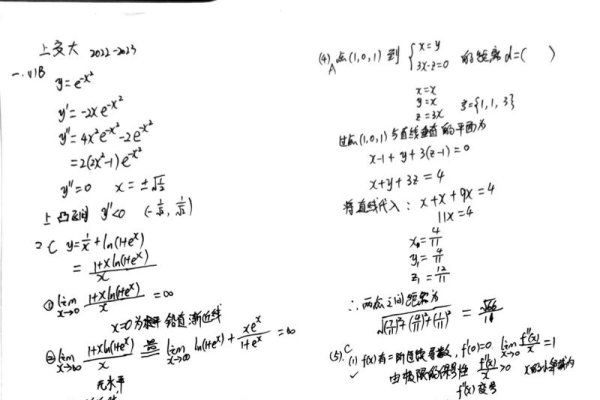 上交大 2022-2023
一. (1)B
y=e^{-x²}
y'=-2xe^{-x²}
y''=4x²e^{-x²}-2e^{-x²}
=2(2x²-1)e^{-x²}
y''=0 x=±√(1/2)
上凸区间 y''<0 (-1/√2, 1/√2)
2 C y=1/x+ln(1+e^x)
=(1+xln(1+e^x))/x
① lim_{x→0} (1+xln(1+e^x))/x=∞
x=0为 铅直渐近线
② lim_{x→∞} (1+xln(1+e^x))/x = lim_{x→∞} ln(1+e^x)+xe^x/(1+e^x)=∞
无水平
(4) 点(1,0,1)到 { x=y 3x-z=0 的距离d=( )
A
x=x
y=x
z=3x
s={1,1,3}
过点(1,0,1)与直线垂直的平面为
x-1+y+3(z-1)=0
x+y+3z=4
将直线代入: x+x+9x=4
11x=4
x₀=4/11
y₁=4/11
z₁=12/11
∴两点之间距离为
√((7/11)²+(4/11)²+(1/11)²)=√66/11
(5). C (1) f(x)有二阶连续导数, f'(0)=0 lim_{x→0} f''(x)/x=1
✓ 由极限的保号性 f''(x)/x>0 x的
f''(x)变号